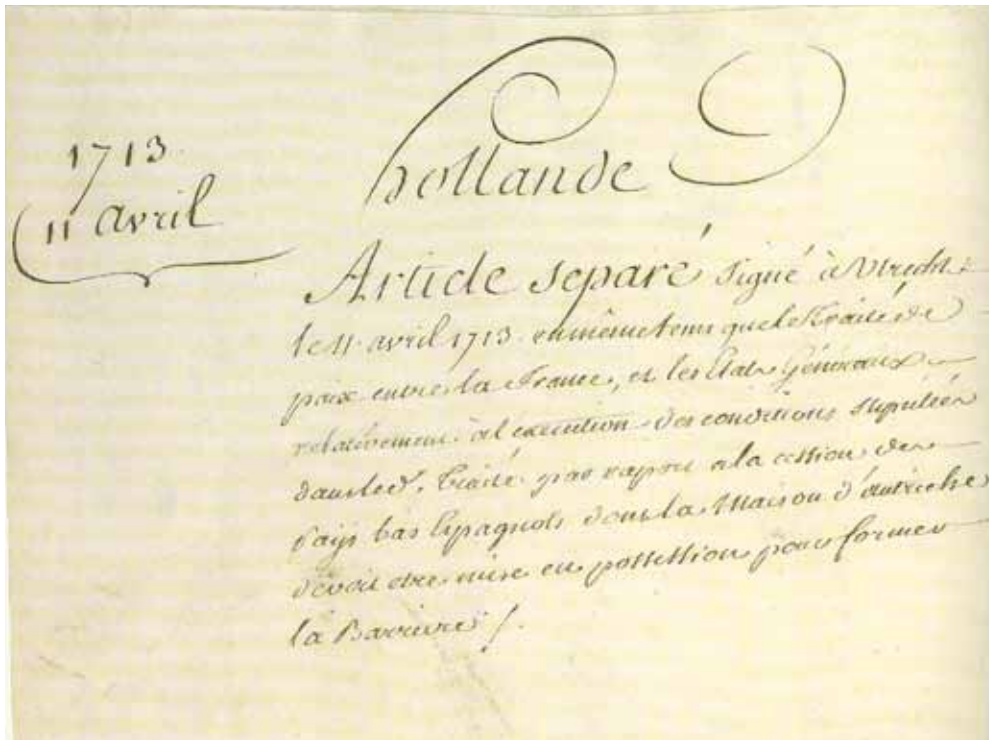 1713.
11 avril
hollande
Article separé signé à Utrecht
le 11. avril 1713. en même tems que le Traité de
paix entre la France, et les Etats Généraux
relativement à l'execution des conditions stipulées
dans led. Traité par raport a la cession des
Pays bas Espagnols dont la Maison d'autriche
devoit etre mise en possession pour former
la Barriere /.